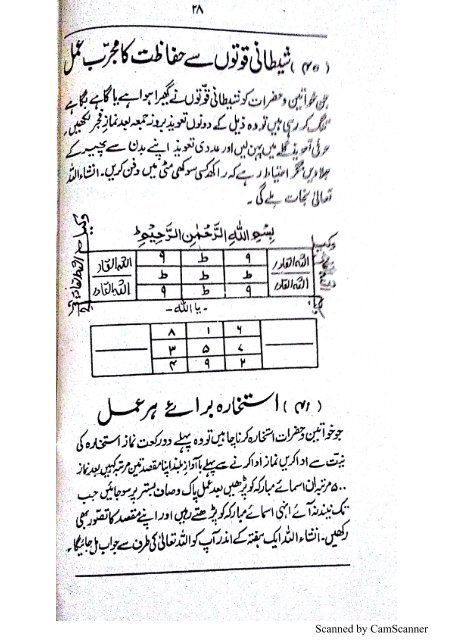 ۲۸
(۴۰) شیطانی قوتوں سے حفاظت کا مجرّب عمل
جن خواتین و حضرات کو شیطانی قوّتوں نے گھیرا ہوا ہے یا گاہے بگاہے
تنگ کر رہی ہیں تو وہ ذیل کے دونوں تعویذ بروز جمعہ بعد نمازِ فجر لکھیں۔
حرفی تعویذ گلے میں پہن لیں اور عددی تعویذ اپنے بدن سے پھیر کے
جلا دیں مگر احتیاط رہے کہ راکھ کسی سوکھی مٹی میں دفن کریں۔ انشاء اللہ
تعالیٰ نجات ملے گی۔
بِسْمِ اللّٰهِ الرَّحْمٰنِ الرَّحِيْمِ ط
اللہ القادر ۹ ط ۹ اللہ القادر
ط ط ط
اللہ القادر ۹ ط ۹ اللہ القادر
- یا اللہ -
۸ ۱ ۶
۳ ۵ ۷
۴ ۹ ۲
(۴۱) استخارہ برائے ہر عمل
جو خواتین و حضرات استخارہ کرنا چاہیں تو وہ پہلے دو رکعت نماز استخارہ کی
نیت سے ادا کریں نماز ادا کرنے سے پہلے باآواز بلند اپنا مقصد تین مرتبہ کہیں بعد نماز
۵۰۰ مرتبہ ان اسمائے مبارکہ کو پڑھیں بعد عمل پاک و صاف بستر پر سو جائیں جب
تک نیند نہ آئے انہی اسمائے مبارکہ کو پڑھتے رہیں اور اپنے مقصد کا تصور بھی
رکھیں۔ انشاء اللہ ایک ہفتہ کے اندر آپ کو اللہ تعالیٰ کی طرف سے جواب مل جائیگا۔
Scanned by CamScanner